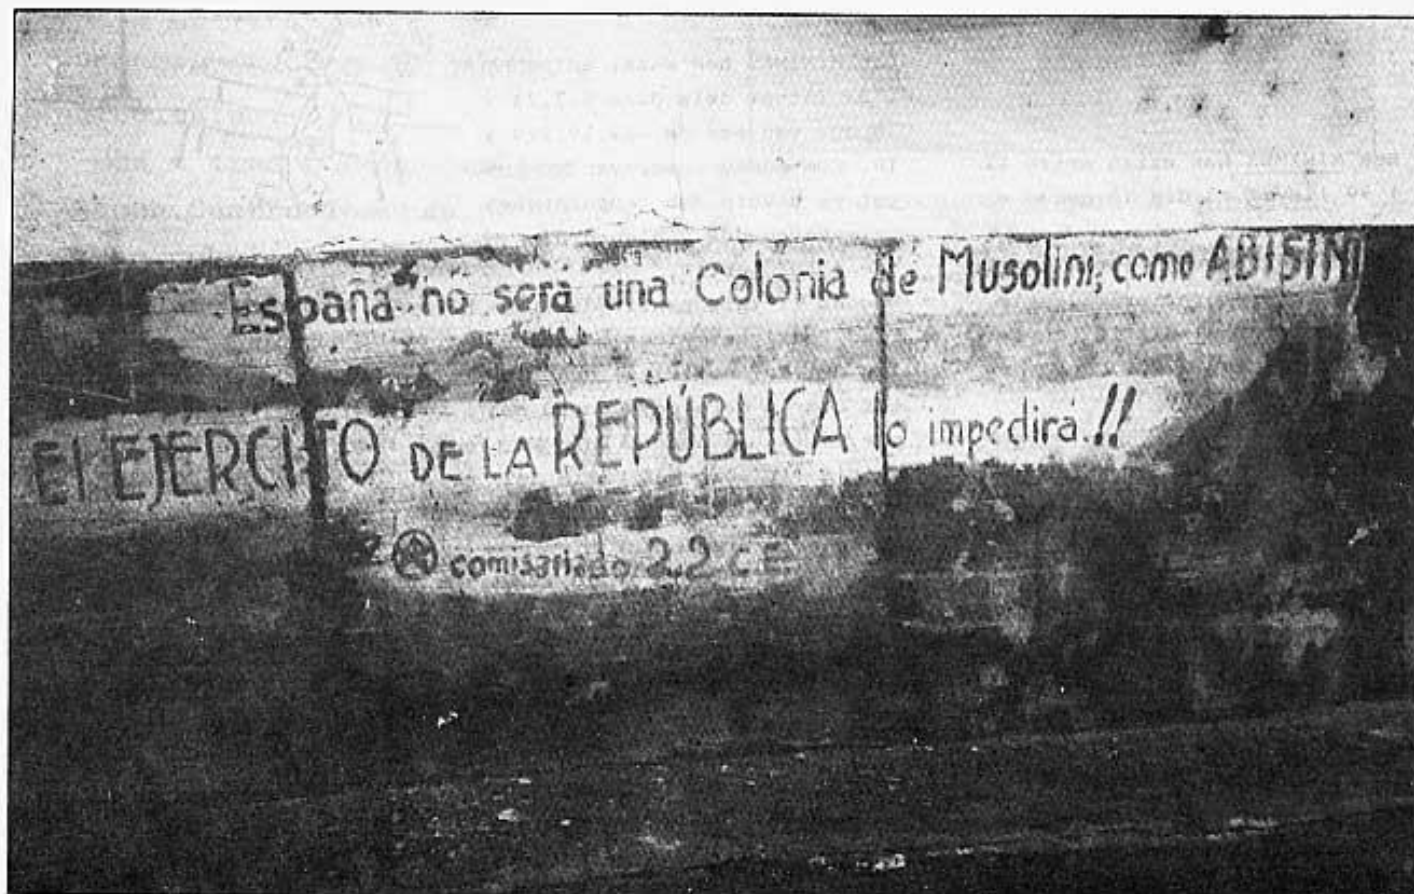 España no será una Colonia de Musolini, como ABISINI
El EJÉRCITO DE LA REPÚBLICA lo impedirá.!!
comisariado 22 C.E.